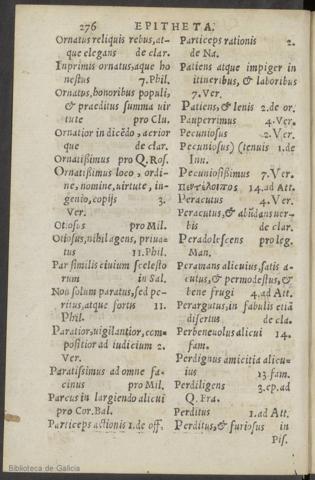 276 EPITHETA.
Ornatus reliquis rebus, at-
que elegans de clar.
Inprimis ornatus, aque ho
nestus 7. Phil.
Ornatus, honoribus populi,
& praeditus summa uir
tute pro Clu.
Ornatior in dicēdo, acrior
que de clar.
Ornatißimus pro Q. Ros.
Ornatißimus loco, ordi-
ne, nomine, uirtute, in-
genio, copijs 3.
Ver.
Otiosus pro Mil.
Otiosus, nihil agens, priua-
tus 11. Phil.
Par similis ciuium scelesto
rum in Sal.
Non solum paratus, sed pe-
ritus, atque fortis 11.
Phil.
Paratior, uigilantior, com-
positior ad iudicium 2.
Ver.
Paratissimus ad omne fa-
cinus pro Mil.
Parcus in largiendo alicui
pro Cor. Bal.
Particeps actionis 1. de off.
Particeps rationis 2.
de Na.
Patiens atque impiger in
itineribus, & laboribus
7. Ver.
Patiens, & lenis 2. de or.
Pauperrimus 4. Ver.
Pecuniosus 2. Ver.
Pecuniosus) (tenuis 1. de
Inu.
Pecuniosißimus 7. Ver.
14. ad Att.
Peracutus 4. Ver.
Peracutus, & abūdans uer-
bis de clar.
Peradolescens pro leg.
Man.
Peramans alicuius, satis a-
cutus, & permodestus, &
bene frugi 4. ad Att.
Perargutus, in fabulis etiā
disertus de cla.
Perbeneuolus alicui 14.
fam.
Perdignus amicitia alicu-
ius 13. fam.
Perdiligens 3. ep. ad
Q. Fra.
Perditus 1. ad Att.
Perditus, & furiosus in
Pis.
Biblioteca de Galicia